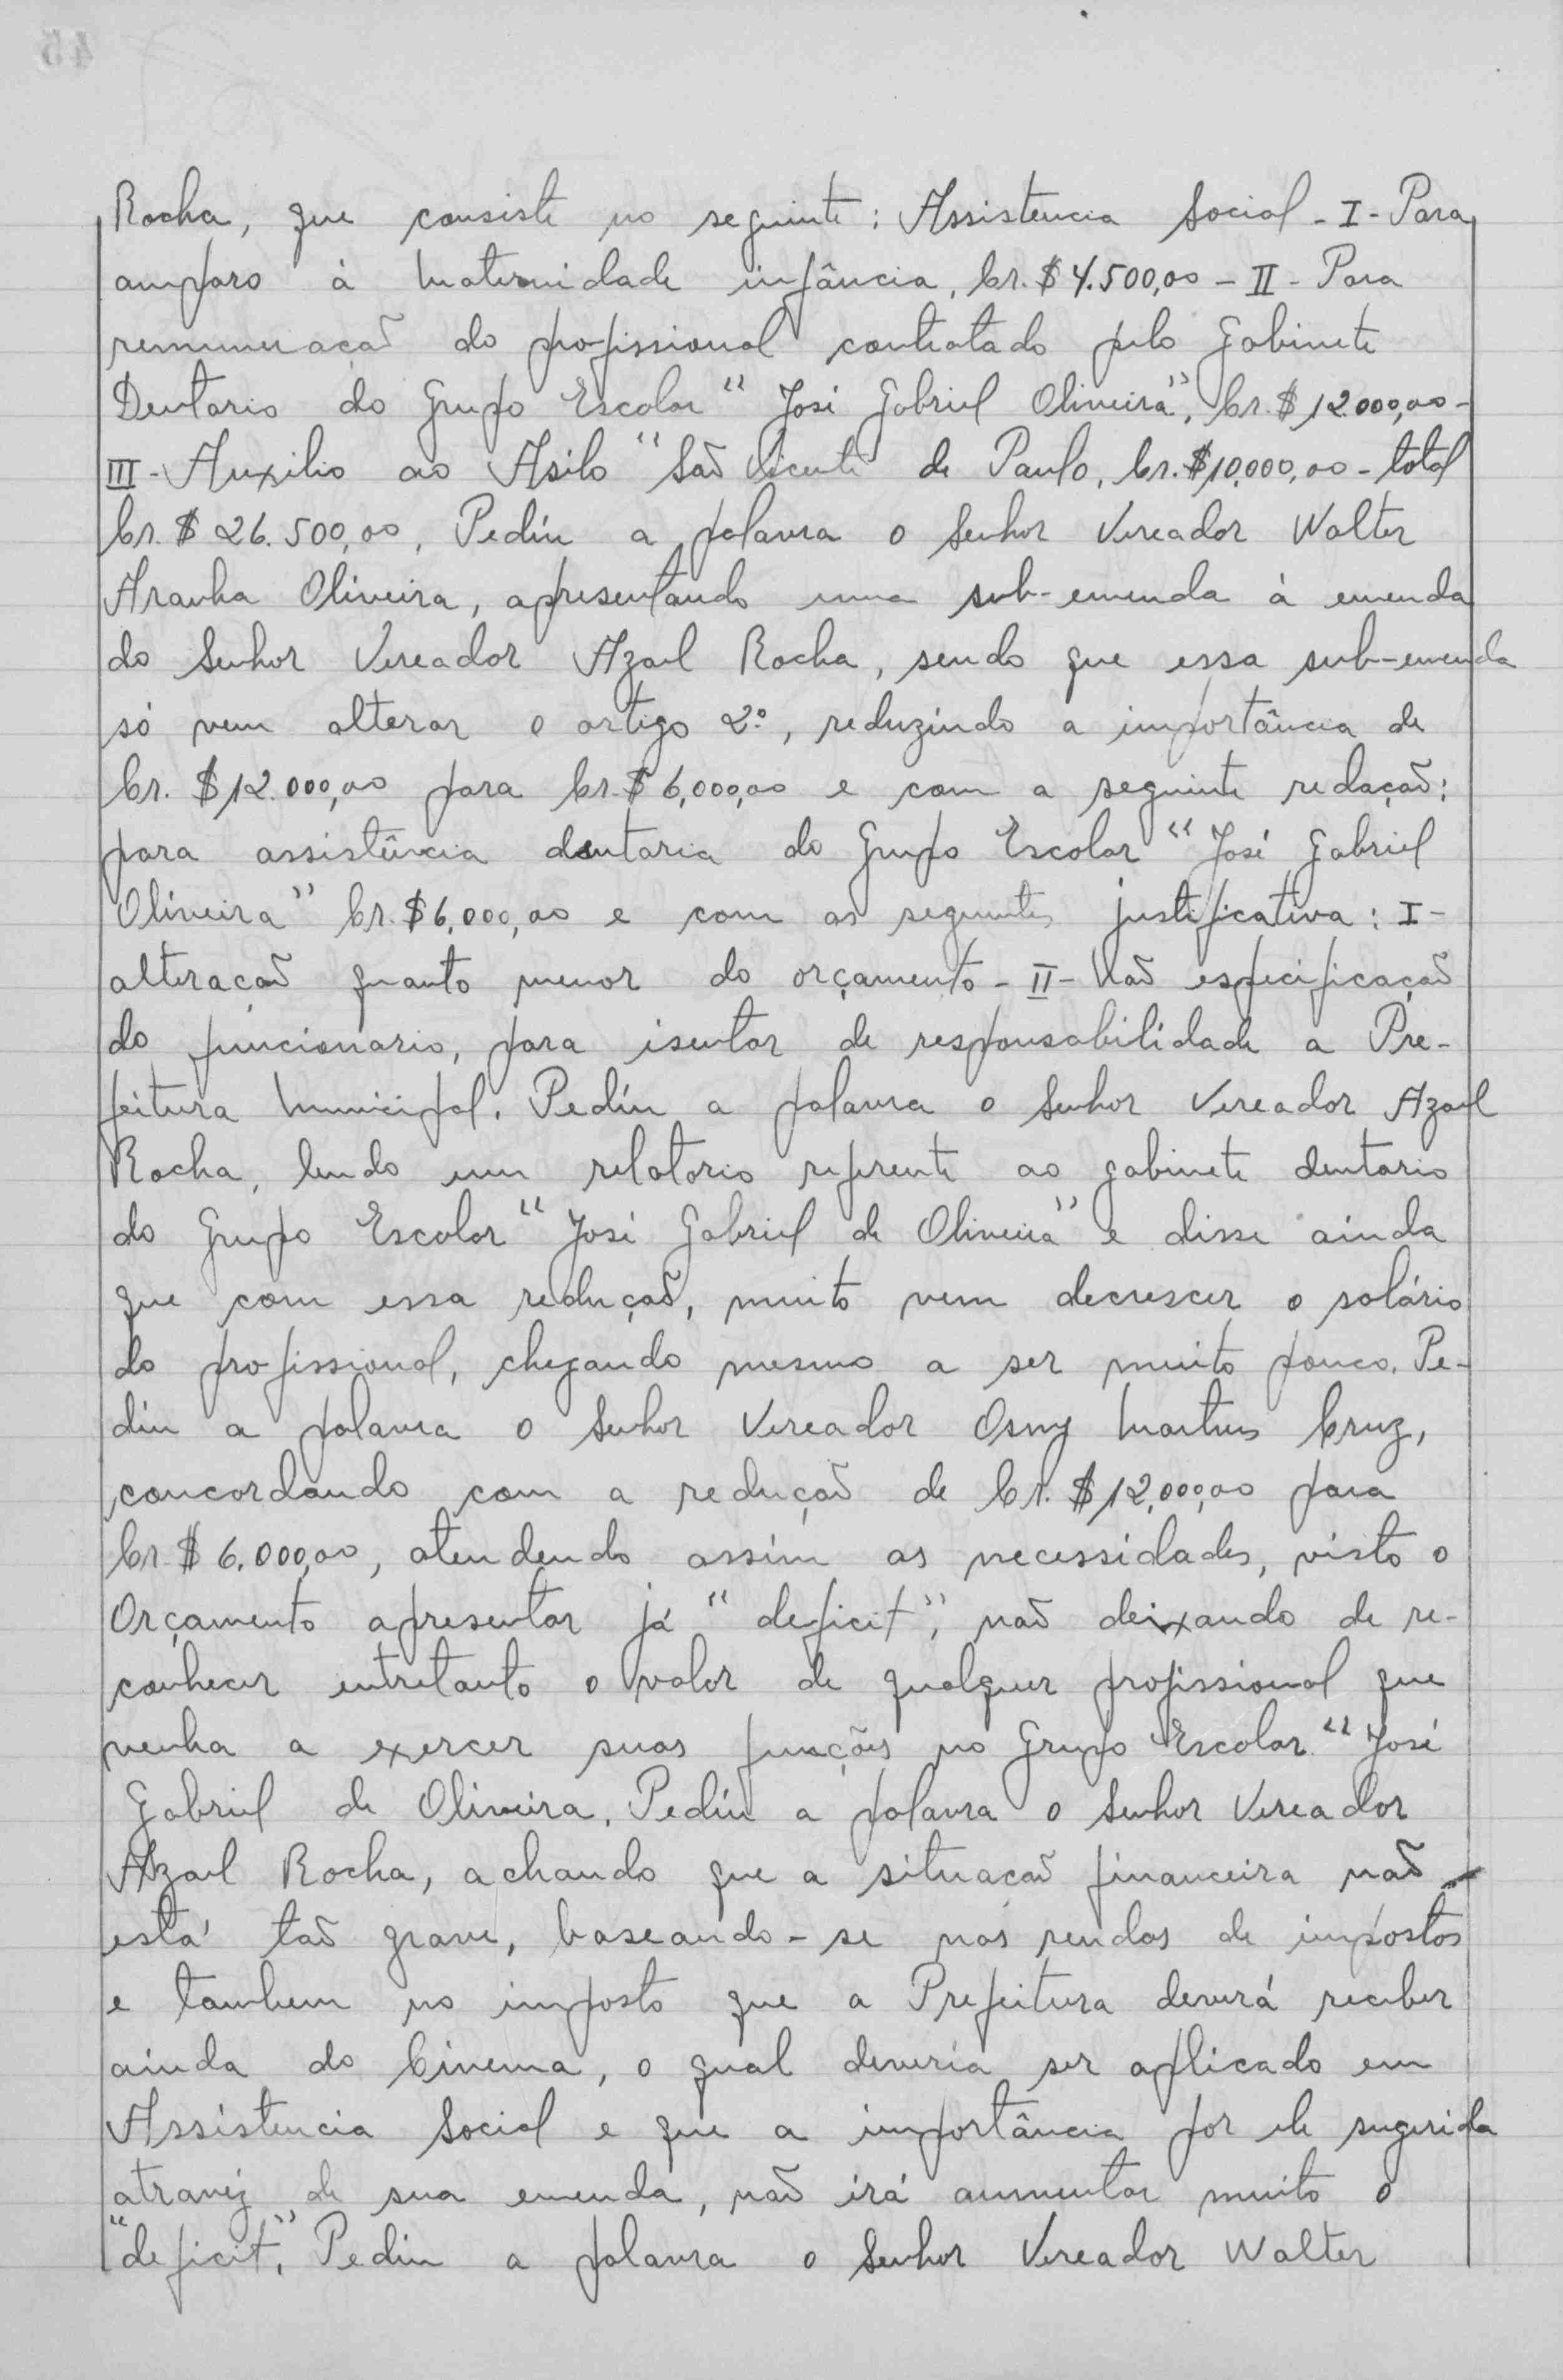 Rocha, que consiste no seguinte: Assistencia Social - I - Para
amparo à Maternidade infância, Cr.$ 4.500,00 - II - Para
remuneração do profissional contratado pelo Gabinete
Dentario do Grupo Escolar "José Gabriel Oliveira", Cr.$ 12.000,00 -
III - Auxilio ao Asilo "São Vicente de Paulo, Cr.$ 10.000,00 - total
Cr.$ 26.500,00, Pediu a palavra o Senhor Vereador Walter
Aranha Oliveira, apresentando uma sub-emenda à emenda
do Senhor Vereador Azael Rocha, sendo que essa sub-emenda
só vem alterar o artigo 2º, reduzindo a importância de
Cr. $ 12.000,00 para Cr.$ 6,000,00 e com a seguinte redação:
para assistência dentaria do Grupo Escolar "José Gabriel
Oliveira" Cr.$ 6,000,00 e com as seguintes justificativa: I -
alteração quanto menor do orçamento - II - Não especificação
do funcionario, para isentar de responsabilidade a Pre-
feitura Municipal. Pediu a palavra o Senhor Vereador Azael
Rocha, lendo um relatorio referente ao gabinete dentario
do Grupo Escolar "José Gabriel de Oliveira" e disse ainda
que com essa redução, muito vem decrescer o salário
do profissional, chegando mesmo a ser muito pouco. Pe-
diu a palavra o Senhor Vereador Osny Martins Cruz,
concordando com a redução de Cr. $ 12,000,00 para
Cr.$ 6.000,00, atendendo assim as necessidades, visto o
Orçamento apresentar já "deficit", não deixando de re-
conhecer entretanto o valor de qualquer profissional que
venha a exercer suas funções no Grupo Escolar "José
Gabriel de Oliveira. Pediu a palavra o Senhor Vereador
Azael Rocha, achando que a situação financeira não
está tão grave, baseando-se nas rendas de impostos
e tambem no imposto que a Prefeitura deverá receber
ainda do Cinema, o qual deveria ser aplicado em
Assistencia Social e que a importância por ele sugerida
atravéz de sua emenda, não irá aumentar muito o
"deficit", Pediu a palavra o Senhor Vereador Walter